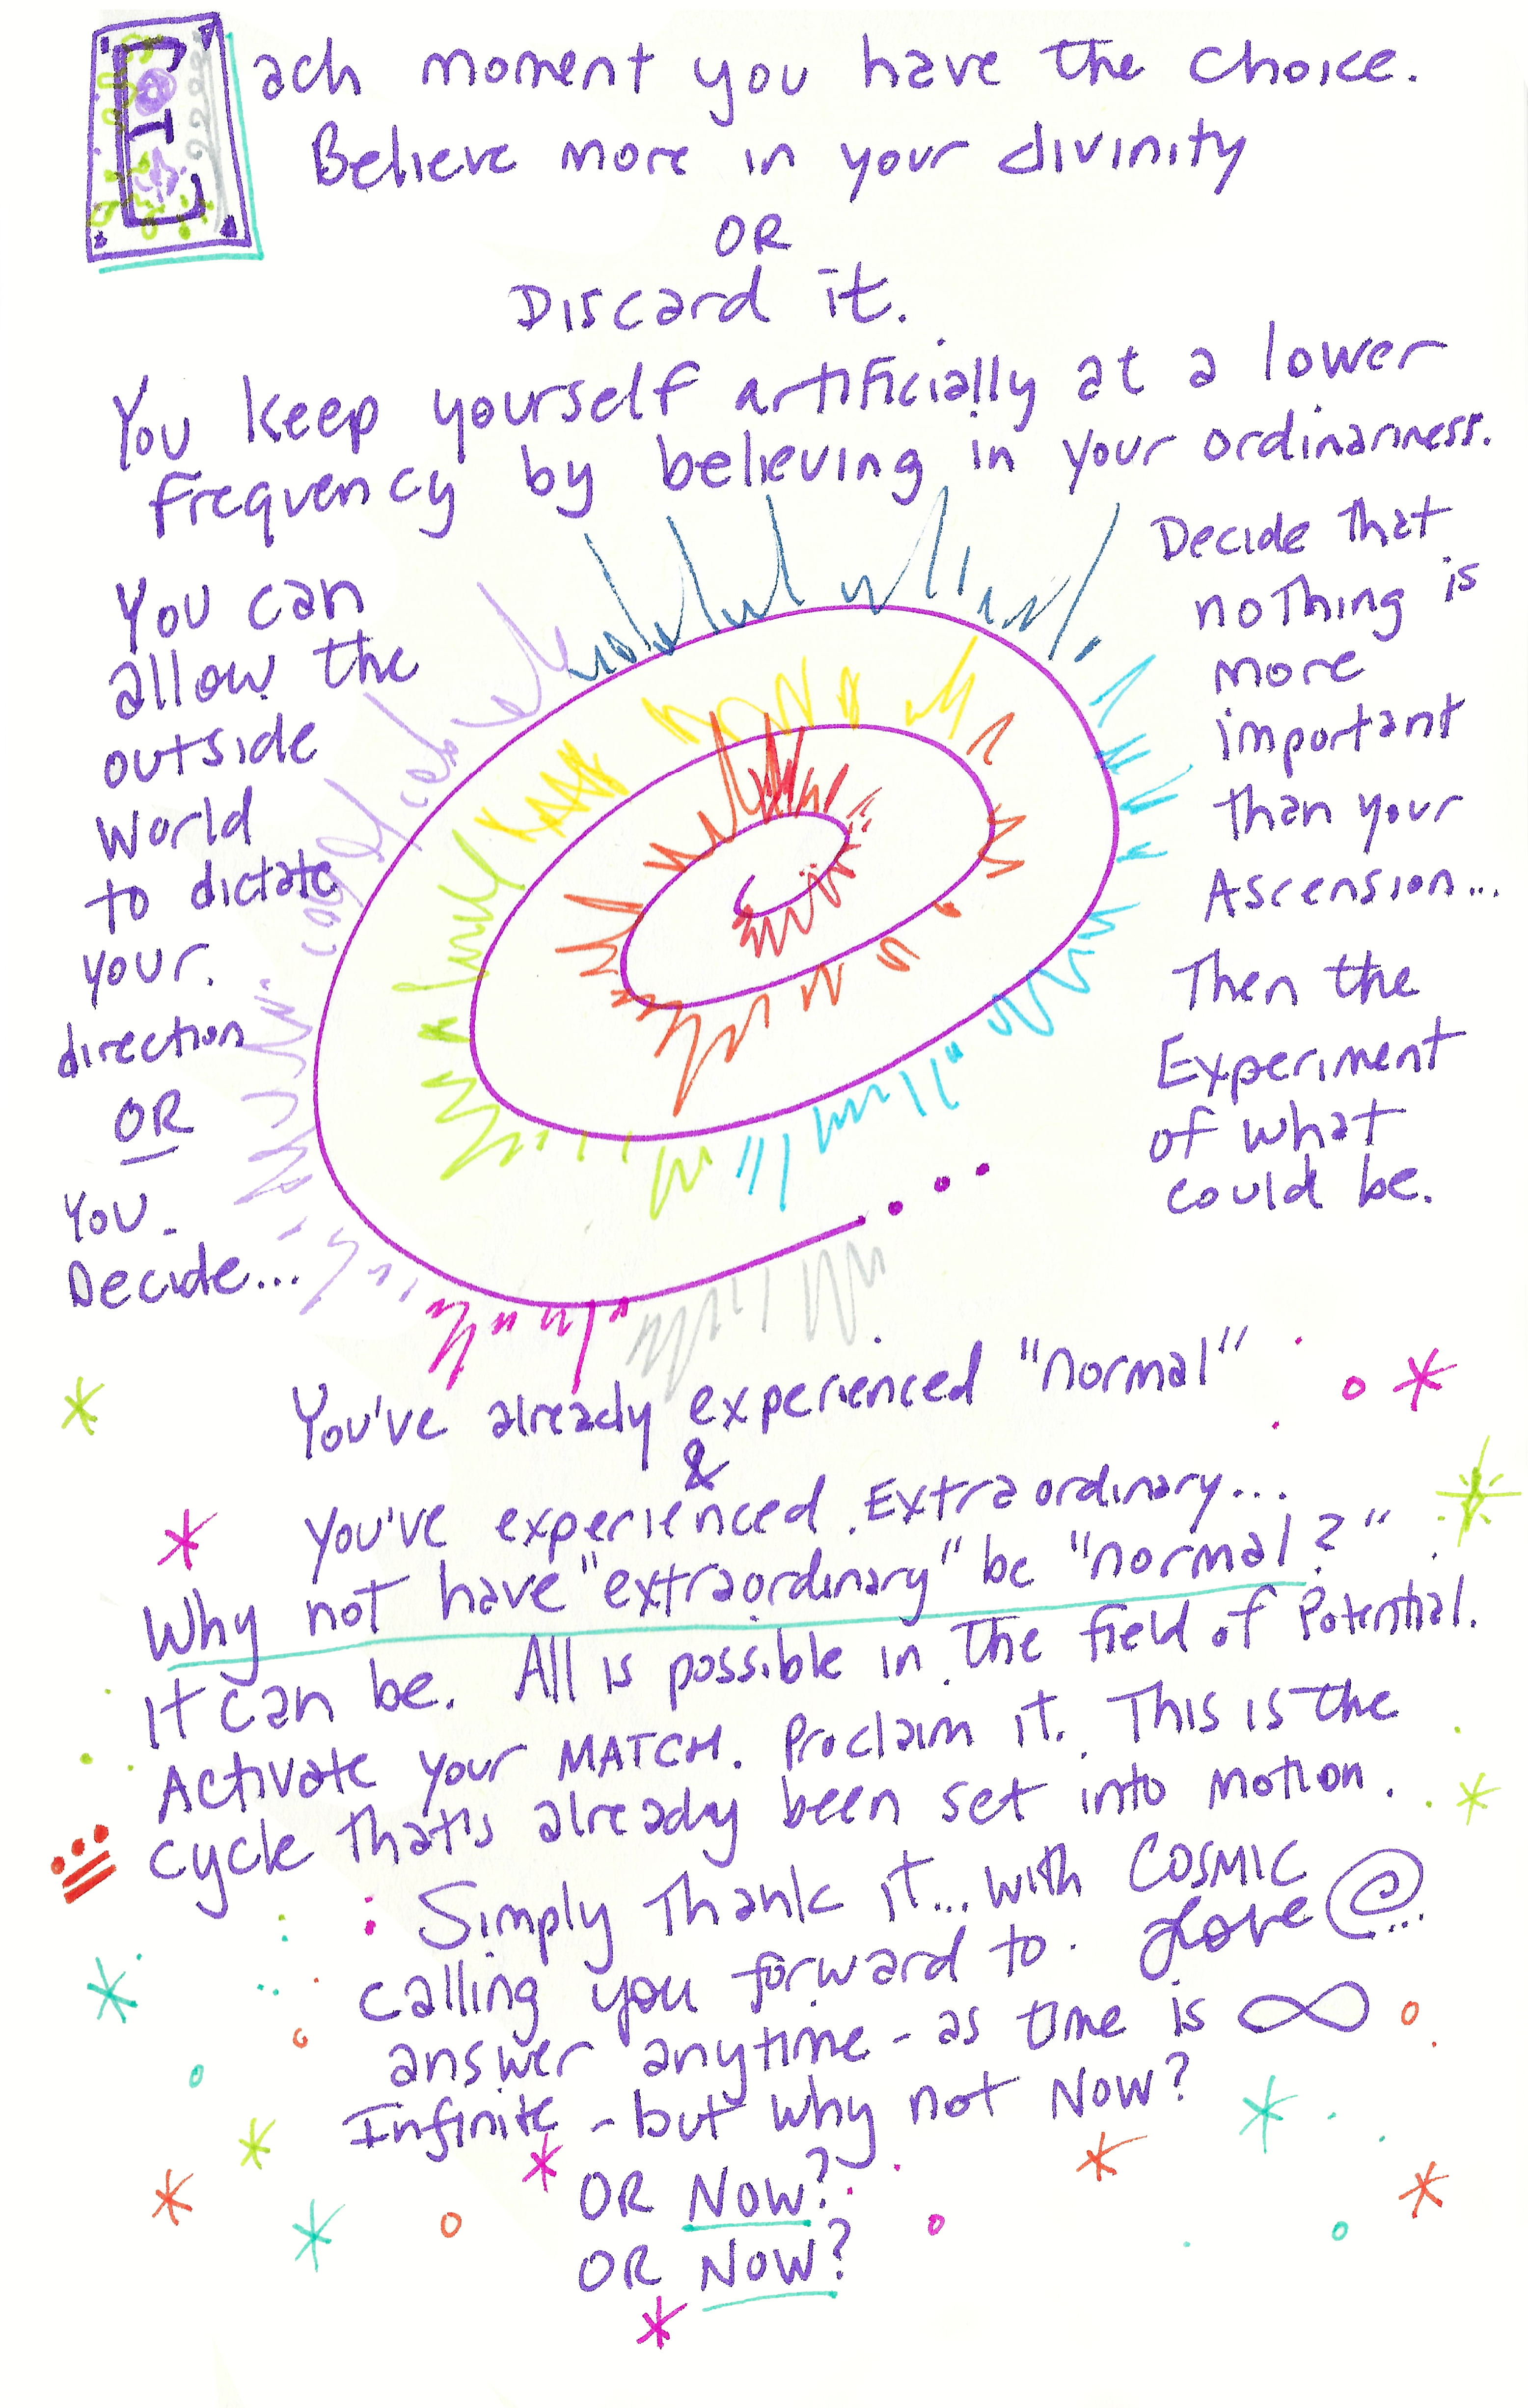 Each moment you have the choice.
Believe more in your divinity
OR
Discard it.
You keep yourself artificially at a lower
frequency by believing in your ordinariness.
You can
allow the
outside
world
to dictate
your.
direction
OR
You.
Decide...
Decide that
nothing is
more
important
than your
Ascension...
Then the
Experiment
of what
could be.
You've already experienced "normal"
&
You've experienced Extraordinary...
Why not have "extraordinary" be "normal?"
It can be. All is possible in the field of Potential.
Activate your MATCH. Proclaim it. This is the
cycle that's already been set into motion.
Simply Thank it... with COSMIC
Love
calling you forward to.
answer anytime - as time is ∞
Infinite - but why not NOW?
OR NOW?
OR NOW?